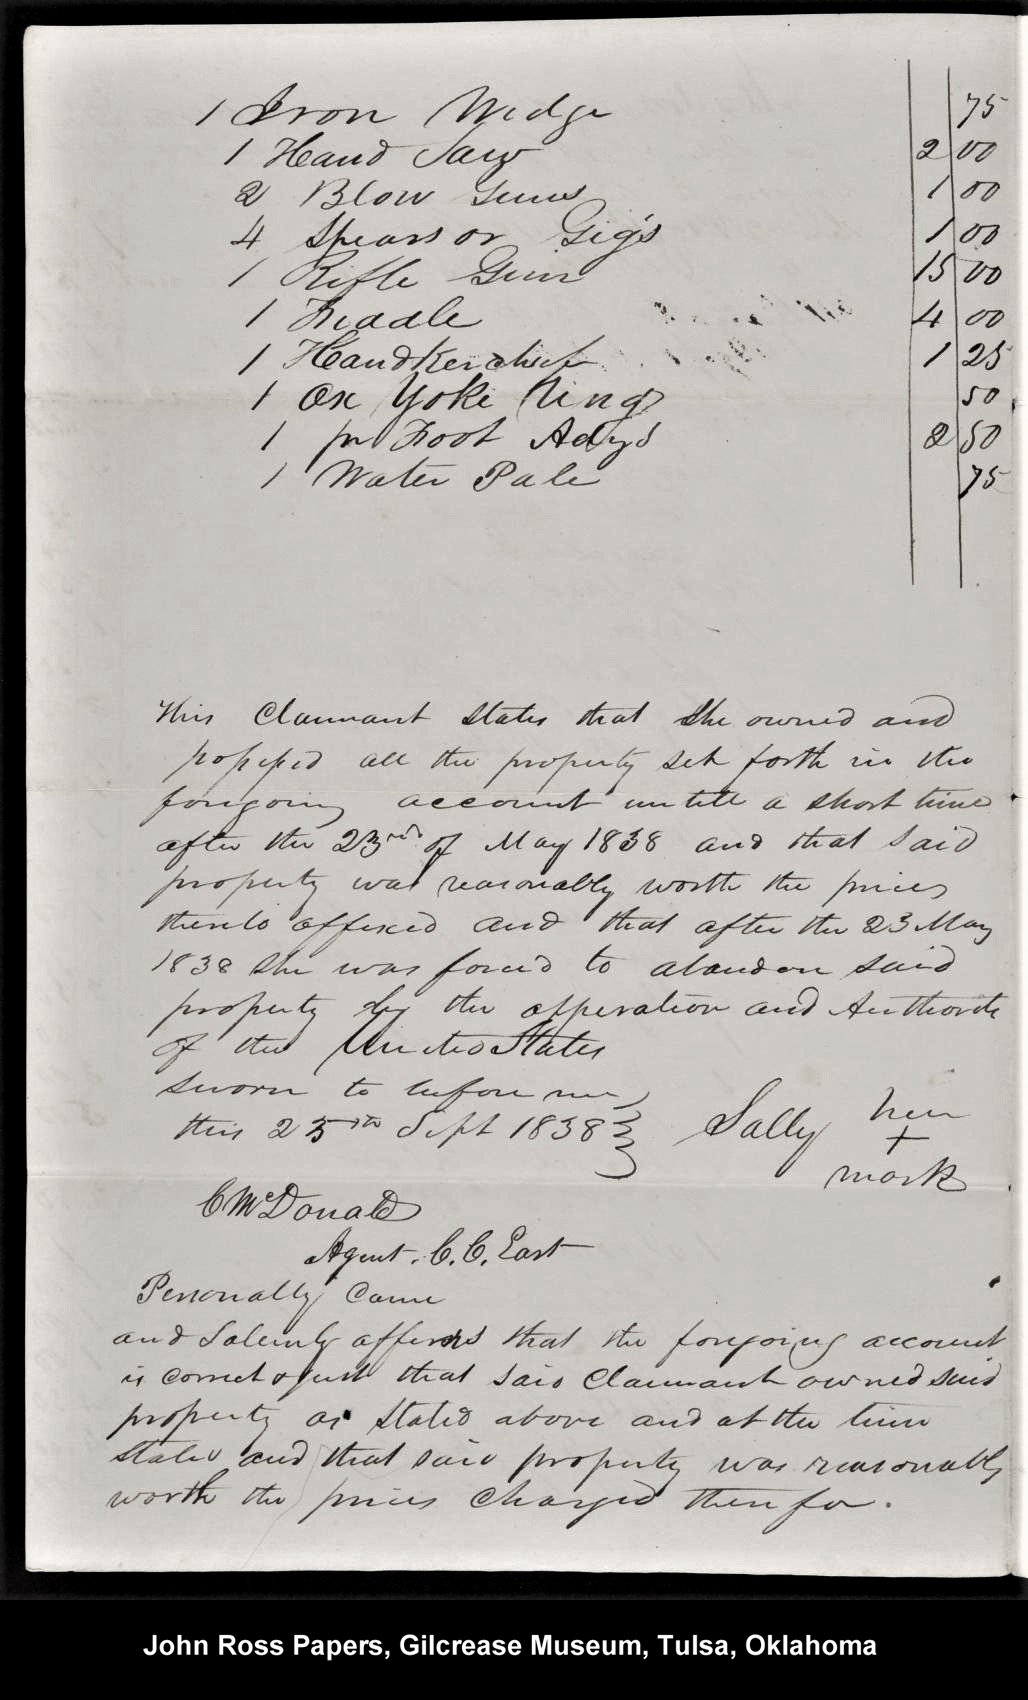 1 Iron Wedge 75
1 Hand Saw 2 00
2 Blow Guns 1 00
4 Spears or Gig's 1 00
1 Rifle Gun 15 00
1 Fiddle 4 00
1 Handkerchief 1 25
1 Ox Yoke Ring 50
1 pr Foot Adz's 2 50
1 Water Pale 75
This Claimant states that She owned and
possessed all the property set forth in the
foregoing account untill a short time
after the 23rd of May 1838 and that said
property was reasonably worth the prices
thereto affixed and that after the 23 May
1838 she was forced to abandon said
property by the opperation and Authority
of the United States
sworn to before me
this 25th Sept 1838 Sally her
+
mark
C McDonald
Agent. C. C. East
Personally Came
and Solemly affirms that the foregoing account
is correct & just that said Claimant owned said
property as stated above and at the time
stated and that said property was reasonably
worth the prices Charged therefor.
John Ross Papers, Gilcrease Museum, Tulsa, Oklahoma